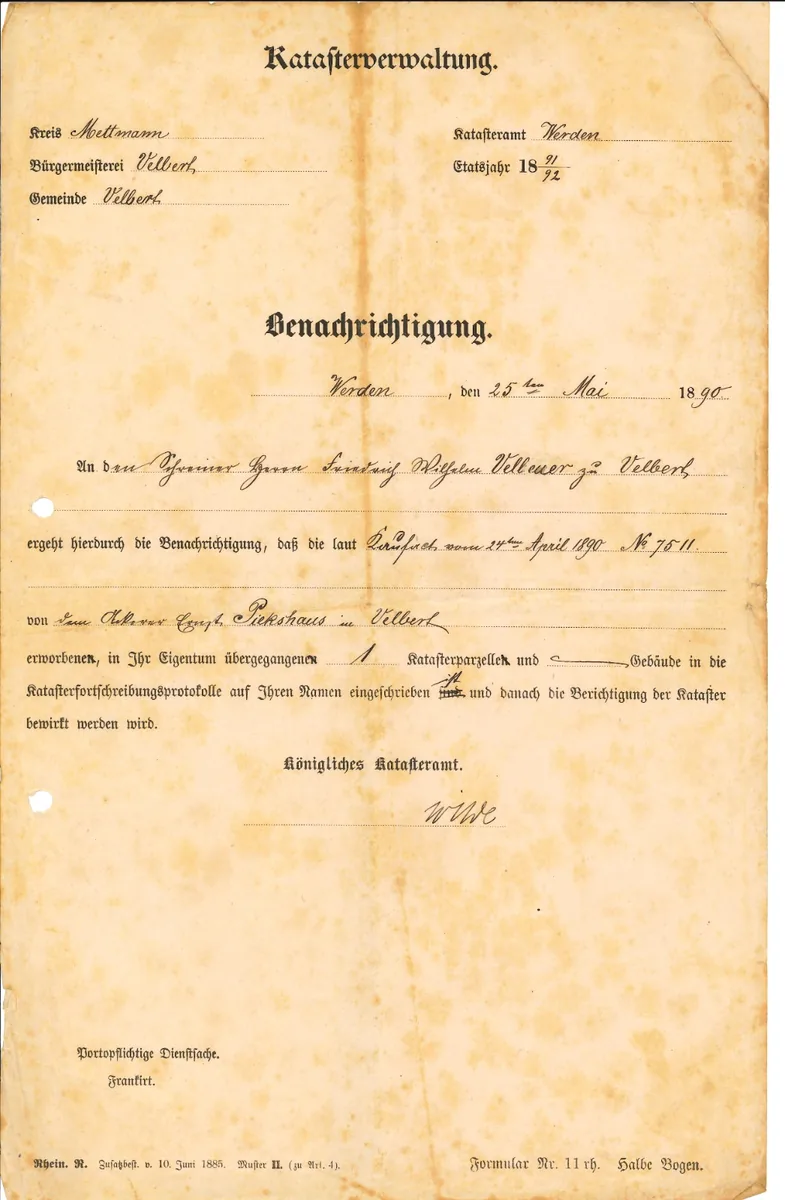 Katasterverwaltung.
Kreis Mettmann
Katasteramt Werden
Bürgermeisterei Velbert
Etatsjahr 18 91/92
Gemeinde Velbert
Benachrichtigung.
Werden, den 25ten Mai 1890
An den Schreiner Herrn Friedrich Wilhelm zu Velbert
ergeht hierdurch die Benachrichtigung, daß die laut Kaufact vom 24ten April 1890 No 7511
von dem Ackerer Ernst Piekshaus in Velbert
erworbenen, in Ihr Eigentum übergegangenen 1 Katasterparzellen und — Gebäude in die
Katasterfortschreibungsprotokolle auf Ihren Namen eingeschrieben ist sind und danach die Berichtigung der Kataster
bewirkt werden wird.
Königliches Katasteramt.
Wilde
Portopflichtige Dienstsache.
Frankirt.
Rhein. R. Zusatzbest. v. 10. Juni 1885. Muster II. (zu Art. 4).
Formular Nr. 11 rh. Halbe Bogen.